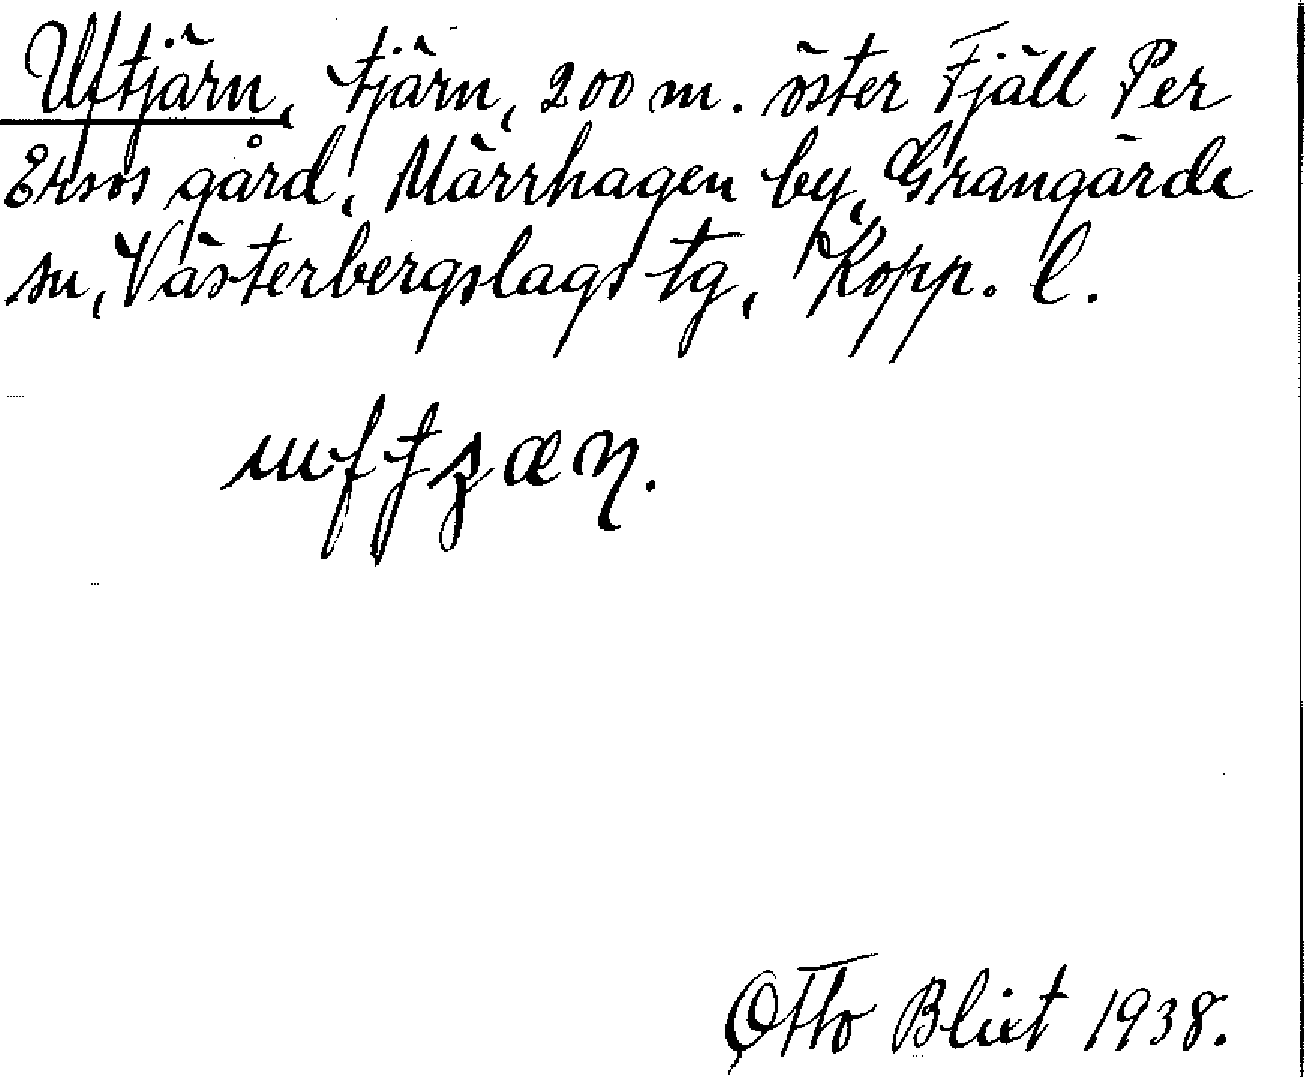 Uftjärn, tjärn, 200 m. öster Fjäll Per
Ersos gård, Märrhagen by, Grangärde
sn, Västerbergslags tg, Kopp. l.
Otto Blixt 1938.